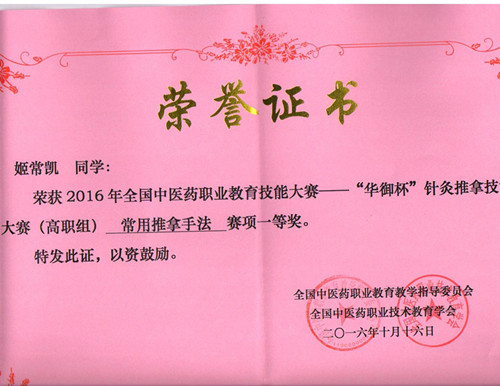 荣誉证书
姬常凯 同学：
荣获2016年全国中医药职业教育技能大赛——“华御杯”针灸推拿技
大赛（高职组） 常用推拿手法 赛项一等奖。
特发此证，以资鼓励。
全国中医药职业教育教学指导委员会
全国中医药职业技术教育学会
二〇一六年十月十六日